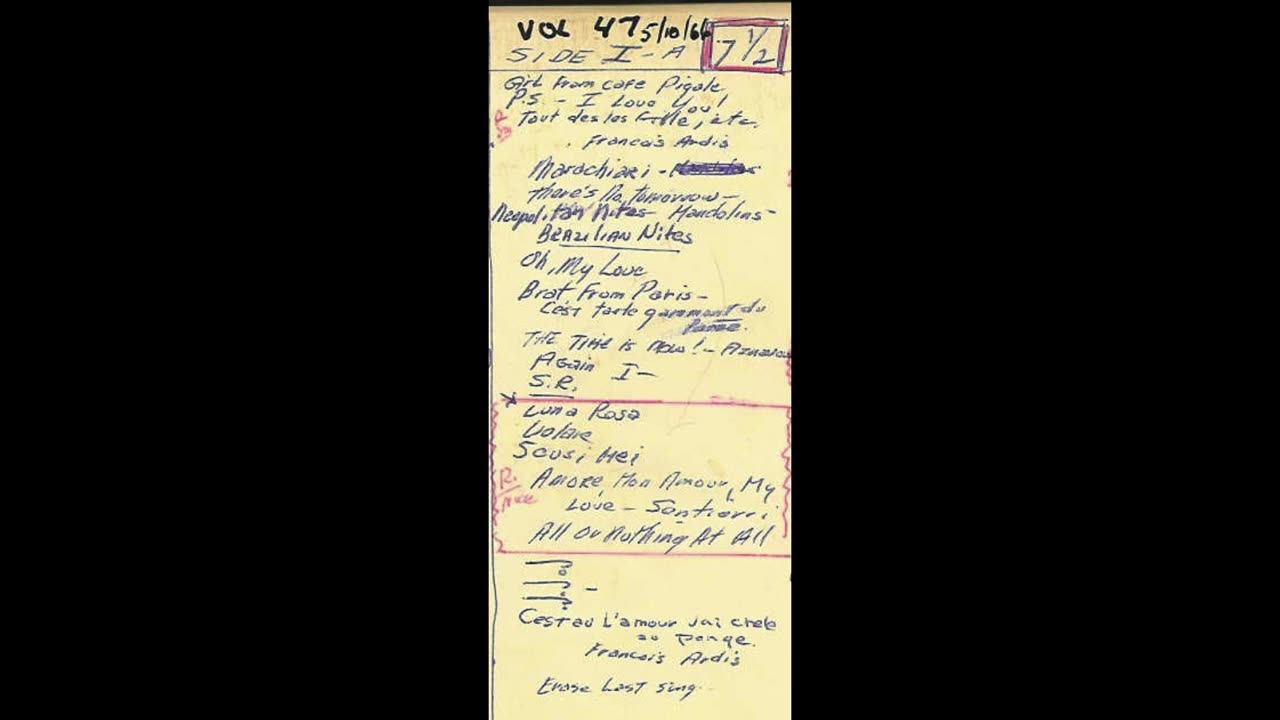 VOL 47 5/10/66
7 1/2
SIDE I-A
Girl From cafe Pigale
P.S. - I Love You!
Tout des les fille, etc.
Francois Ardis
Marachiari -
There's No Tomorrow -
Neopolitan Nites - Mandolins -
BRAZILIAN Nites
Oh, My Love
Brat From Paris -
C'est tarle garamont du
THE TIME is Now! - Aznavour
Again I -
S.R.
Luna Rosa
Volare
Scusi Mei
R.
AMORE Mon Amour, My
Love - Sentierri
All Or Nothing At All
C'est au L'amour jai chele
au pange.
Francois Ardis
Erase Last sing